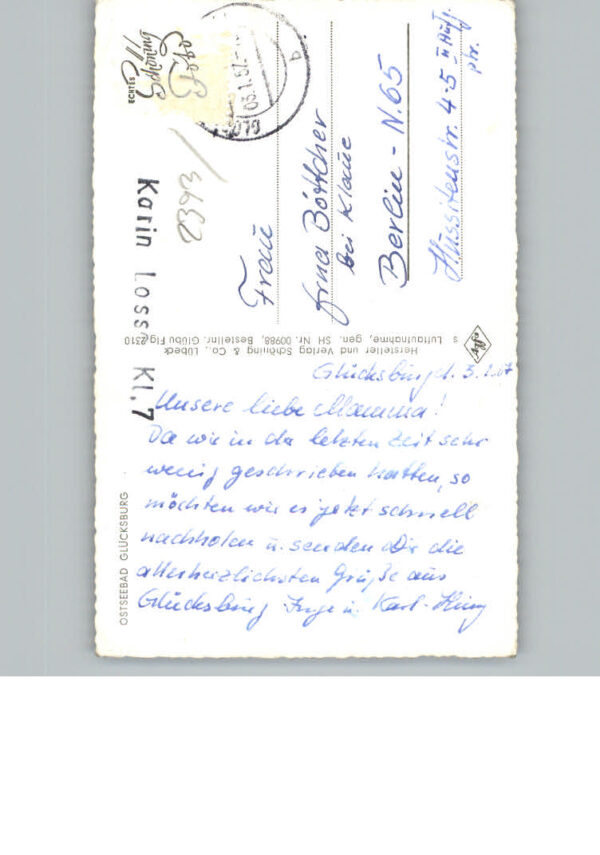 OSTSEEBAD GLÜCKSBURG
Glücksburg, d. 3.1.57
Unsere liebe Mamma!
Da wir in der letzten Zeit sehr
wenig geschrieben hatten, so
möchten wir es jetzt schnell
nachholen u. senden Dir die
allerherzlichsten Grüße aus
Glücksburg Inge u. Karl-Heinz
Hersteller und Verlag Schöning & Co., Lübeck
s Luftaufnahme, gen. SH Nr. 00988, Bestellnr. Glübu Flg 2310
agfa
ECHTES
Schöning
Foto
03.1.57
b
3632
Karin Loss Kl,7
Frau
Erna Böttcher
bei Klaue
Berlin - N.65
Hussitenstr. 4-5 II Aufg.
ptr.